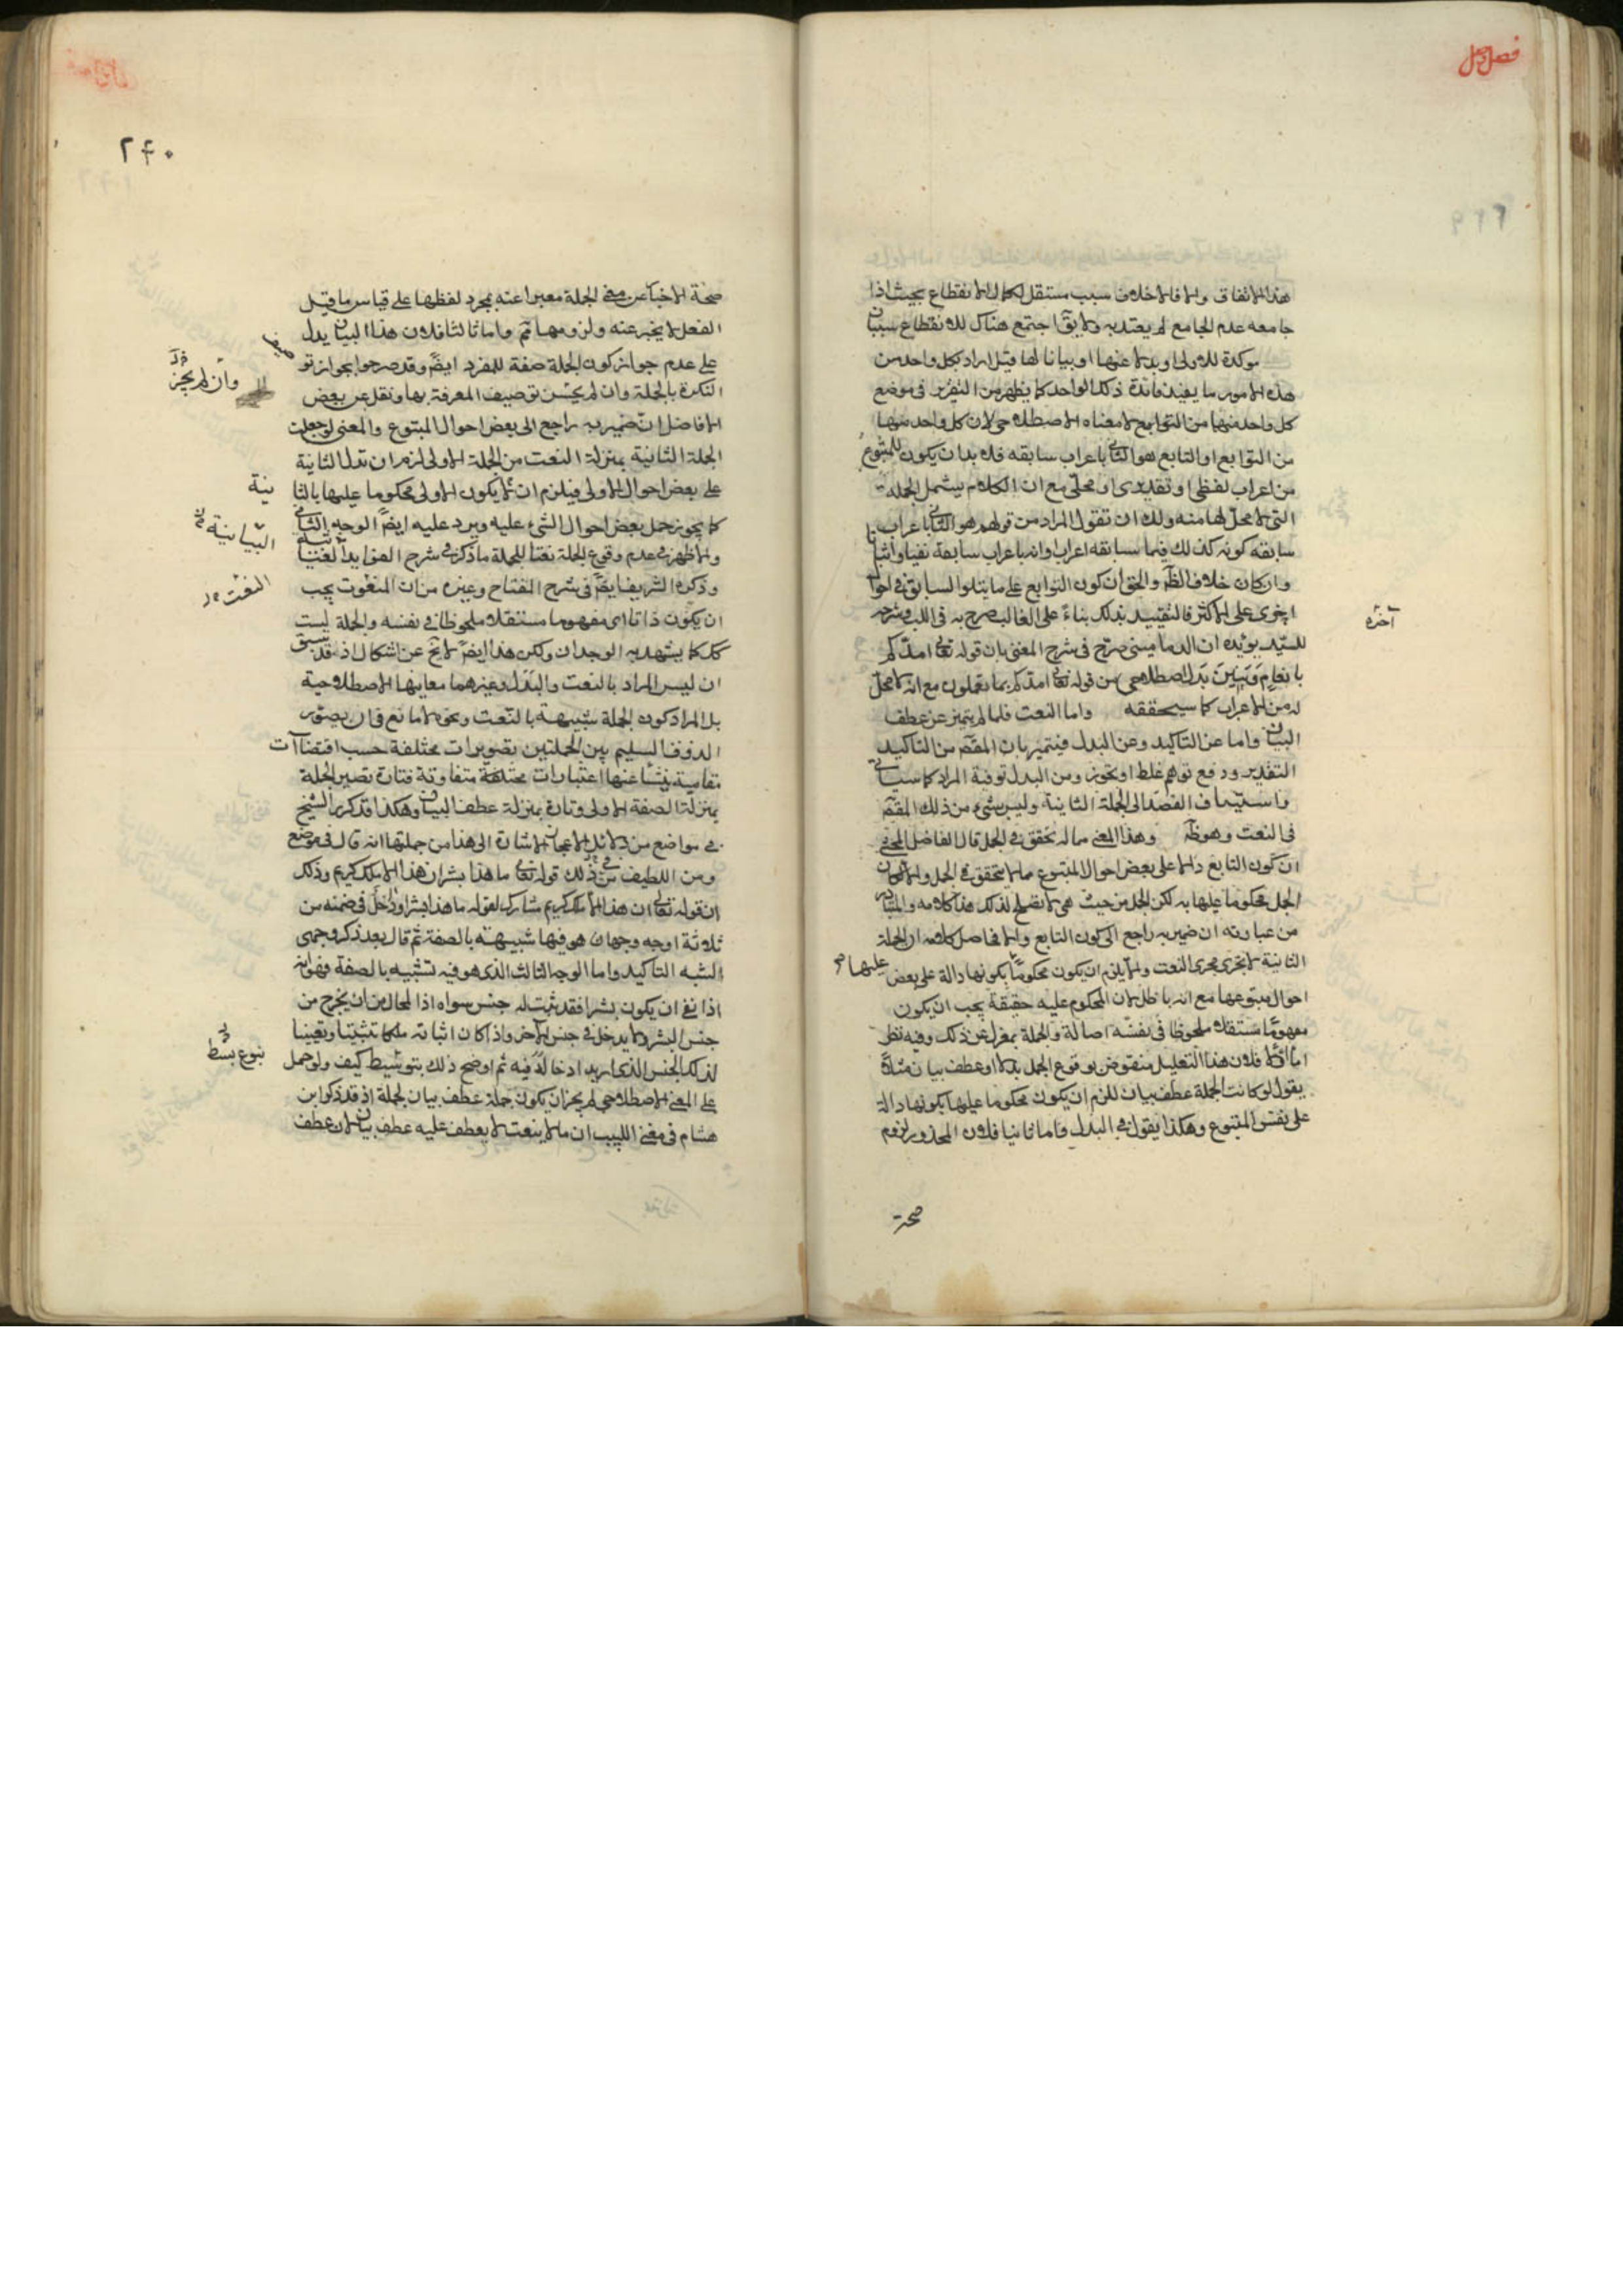 فصل وصل
هذا الاتفاق والا فالاختلاف سبب مستقل لكمال الانقطاع بحيث اذا
جامعه عدم الجامع لم يعتد به ولا يقال اجتمع هناك للانقطاع سببان
موكدة للاولى او بدلا عنها او بيانا لها قيل اراد بكل واحد من
هذه الامور ما يفيد فائدة ذلك الواحد كما يظهر من التقرير فى موضع
كل واحد منها من التوابع لا معناه الاصطلاحى لان كل واحد منها
من التوابع او التابع هو الثانى باعراب سابقه فلا بد ان يكون للمتبوع
من اعراب لفظى او تقديرى او محلى مع ان الكلام يشمل الجملة
التى لا محل لها منه ولك ان تقول المراد من قولهم هو الثانى باعراب
سابقه كونه كذلك فيما سابقه اعراب وانه باعراب سابقه نفيا واثباتا
وان كان خلاف الظ والحق ان كون التوابع على ما يتلوا السابق فى احوال
اجرى على الاكثر فالتقييد بذلك بناء على الغالب صرح به فى اللب وشرحه
آخره
للسيد يؤيده ان الدمامينى صرح فى شرح المغنى بان قوله تعالى امدكم
بانعام وبنين بدل اصطلاحى من قوله تعالى امدكم بما تعلمون مع انه لا محل
له من الاعراب كما سيحققه واما النعت فلما لم يتميز عن عطف
البيان واما عن التاكيد وعن البدل فيتميز بان المقصم من التاكيد
التقدير ودفع توهم غلط او تجوز ومن البدل توفية المراد كما سياتى
واستيناف القصد الى الجملة الثانية وليس شىء من ذلك المقصم
فى النعت وهو ظ وهذا المعنى مما لا تحقق فى الجمل قال الفاضل المحشى
ان كون التابع دالا على بعض احوال المتبوع مما لا يتحقق فى الجمل والا لكان
الجمل محكوما عليها به لكن الجمل من حيث هى لا تصلح لذلك هذا كلامه والمتبادر
من عبارته ان ضمير به راجع الى كون التابع
الثانية لا تجرى مجرى النعت والا يلزم ان يكون محكوما بكونها دالة على بعض
عليها
احوال متبوعها مع انه باطل لان المحكوم عليه حقيقة يجب ان يكون
مفهوما مستقلا ملحوظا فى نفسه اصالة والجملة بمعزل عن ذلك وفيه نظر
اما اولا فلان هذا التعليل منقوض بوقوع الجمل بدلا او عطف بيان مثلا
يقول لو كانت الجملة عطف بيان للزم ان يكون محكوما عليها بكونها دالة
على نفس المتبوع وهكذا يقول فى البدل واما ثانيا فلان المحذور لزوم
صحة
٢٤٠
صحة الاخبار عن معنى الجملة معبرا عنه بمجرد لفظها على قياس ما قيل
الفعل لا يخبر عنه ولزومها ثم واما ثالثا فلان هذا البيان يدل
على عدم جواز كون الجملة صفة للمفرد ايضا وقد صرحوا بجواز تو
صيف
النكرة بالجملة وان لم يحسن توصيف المعرفة بها ونقل عن بعض
وان لم يجز
الافاضل ان ضمير به راجع الى بعض احوال المتبوع والمعنى لو جعلت
الجملة الثانية بمنزلة النعت من الجملة الاولى لزم ان تدل الثانية
على بعض احوال الاولى فيلزم ان لا يكون الاولى محكوما عليها بالثا
نية
كما يجوز حمل بعض احوال الشىء عليه ويرد عليه ايضا الوجه الثانى
البيانية
والاظهر فى عدم وقوع الجملة نعتا للجملة ما ذكر فى شرح الفوايد الغياثية
وذكره الشريف ايضا فى شرح المفتاح وغيره من ان المنعوت يجب
النعت
ان يكون ذاتا اى مفهوما مستقلا ملحوظا فى نفسه والجملة ليست
كذلك كما يشهد به الوجدان ولكن هذا ايضا لا يخ عن اشكال اذ قد سبق
ان ليس المراد بالنعت والبدل وغيرهما معانيها الاصطلاحية
بل المراد كون الجملة شبيهة بالنعت ونحوه لا مانع فان يصور
الذوق السليم بين الجملتين تصويرات مختلفة حسب اقتضاآت
مقامية ينشا عنها اعتبارات مختلفة متفاوتة فتارة تصير الجملة
بمنزلة الصفة الاولى وتارة بمنزلة عطف البيان وهكذا قد كرر الشيخ
فى مواضع من دلائل الاعجاز الاشارة الى هذا من جملتها انه قال فى موضع
ومن اللطيف فى ذلك قوله تعالى ما هذا بشرا ان هذا الا ملك كريم وذلك
ان قوله تعالى ان هذا الا ملك كريم مشارك لقوله ما هذا بشرا وداخل فى ضمنه من
ثلاثة اوجه وجهان هو فيها شبيهة بالصفة ثم قال بعد ذكر وجهى
الشبه التاكيد واما الوجه الثالث الذى هو فيه لتشبيه بالصفة فهو انه
اذا نفى ان يكون بشرا فقد يثبت له جنس سواه اذ المحال من ان يخرج من
جنس البشر ولا يدخل فى جنس الآخر واذا كان اثباته ملكا تثبيتا وتعيينا
لذلك الجنس الذى اريد ادخاله فيه ثم اوضح ذلك بنوع بسط كيف ولو حمل
بنوع بسط
على المعنى الاصطلاحى لم يجز ان يكون جملة عطف بيان لجملة اذ قد ذكر ابن
هشام فى مغنى اللبيب ان ما لا ينعت لا يعطف عليه عطف بيان لان عطف